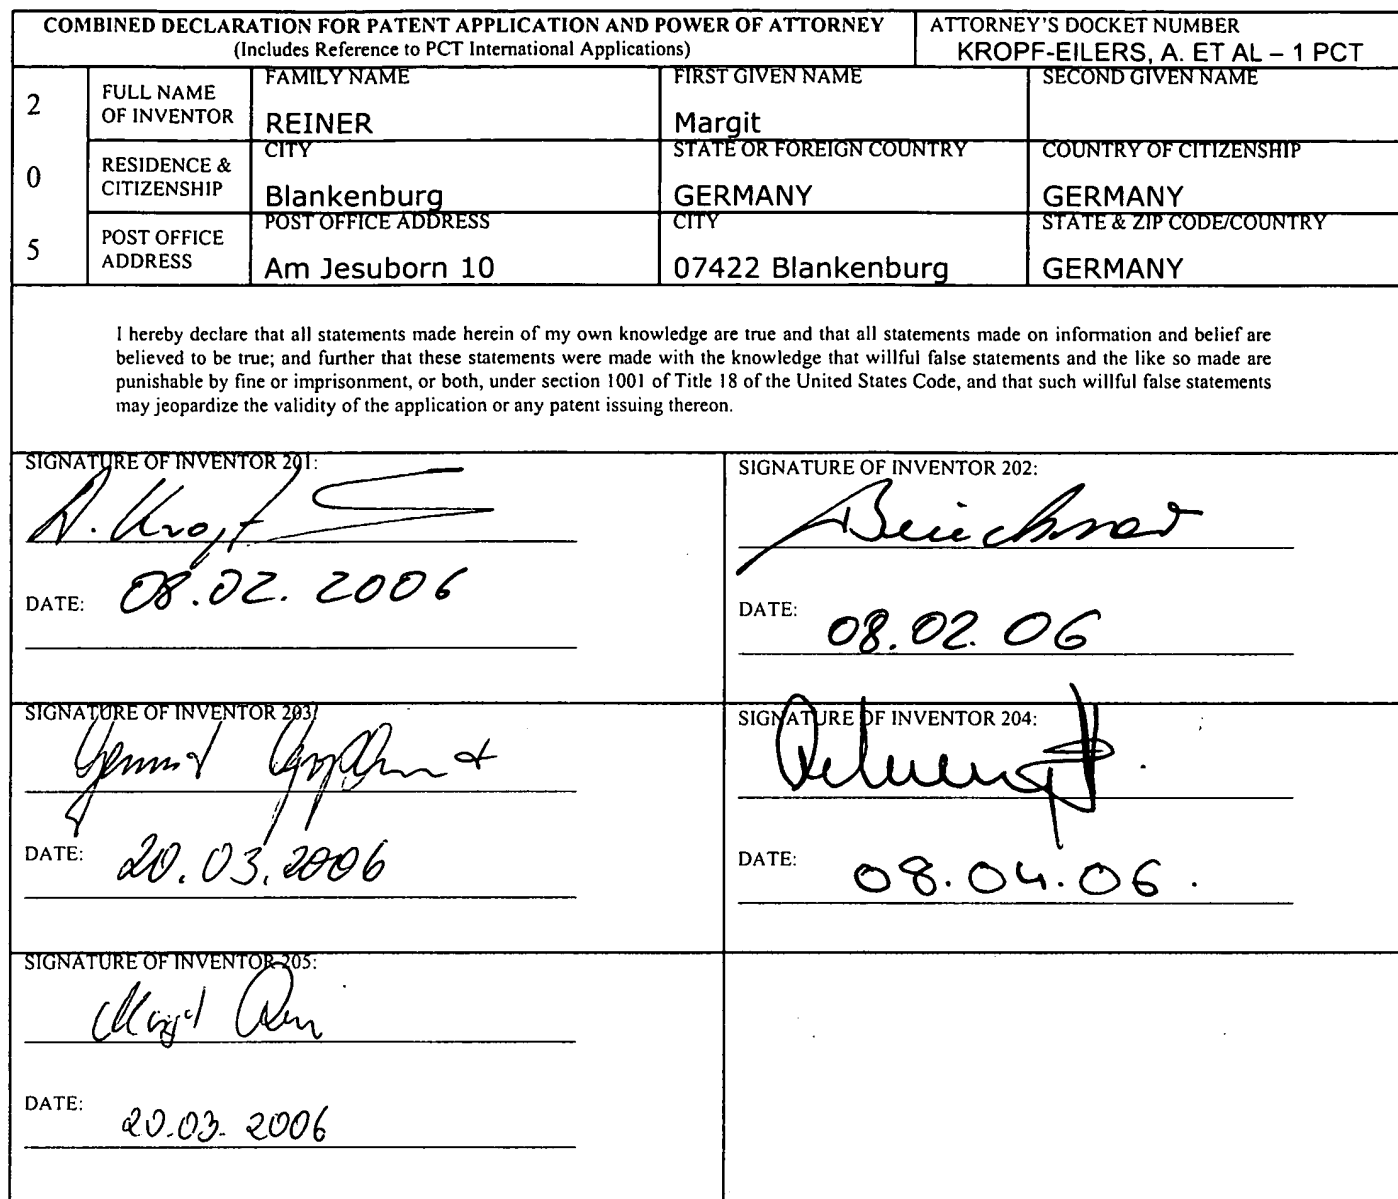 COMBINED DECLARATION FOR PATENT APPLICATION AND POWER OF ATTORNEY
(Includes Reference to PCT International Applications)
ATTORNEY'S DOCKET NUMBER
KROPF-EILERS, A. ET AL – 1 PCT
2
FULL NAME
OF INVENTOR
FAMILY NAME
REINER
FIRST GIVEN NAME
Margit
SECOND GIVEN NAME
0
RESIDENCE &
CITIZENSHIP
CITY
Blankenburg
STATE OR FOREIGN COUNTRY
GERMANY
COUNTRY OF CITIZENSHIP
GERMANY
5
POST OFFICE
ADDRESS
POST OFFICE ADDRESS
Am Jesuborn 10
CITY
07422 Blankenburg
STATE & ZIP CODE/COUNTRY
GERMANY
I hereby declare that all statements made herein of my own knowledge are true and that all statements made on information and belief are
believed to be true; and further that these statements were made with the knowledge that willful false statements and the like so made are
punishable by fine or imprisonment, or both, under section 1001 of Title 18 of the United States Code, and that such willful false statements
may jeopardize the validity of the application or any patent issuing thereon.
SIGNATURE OF INVENTOR 201:
A. Kropf
DATE: 08.02.2006
SIGNATURE OF INVENTOR 202:
DATE: 08.02.06
SIGNATURE OF INVENTOR 203:
DATE: 20.03.2006
SIGNATURE OF INVENTOR 204:
DATE: 08.04.06.
SIGNATURE OF INVENTOR 205:
Margit
DATE: 20.03.2006